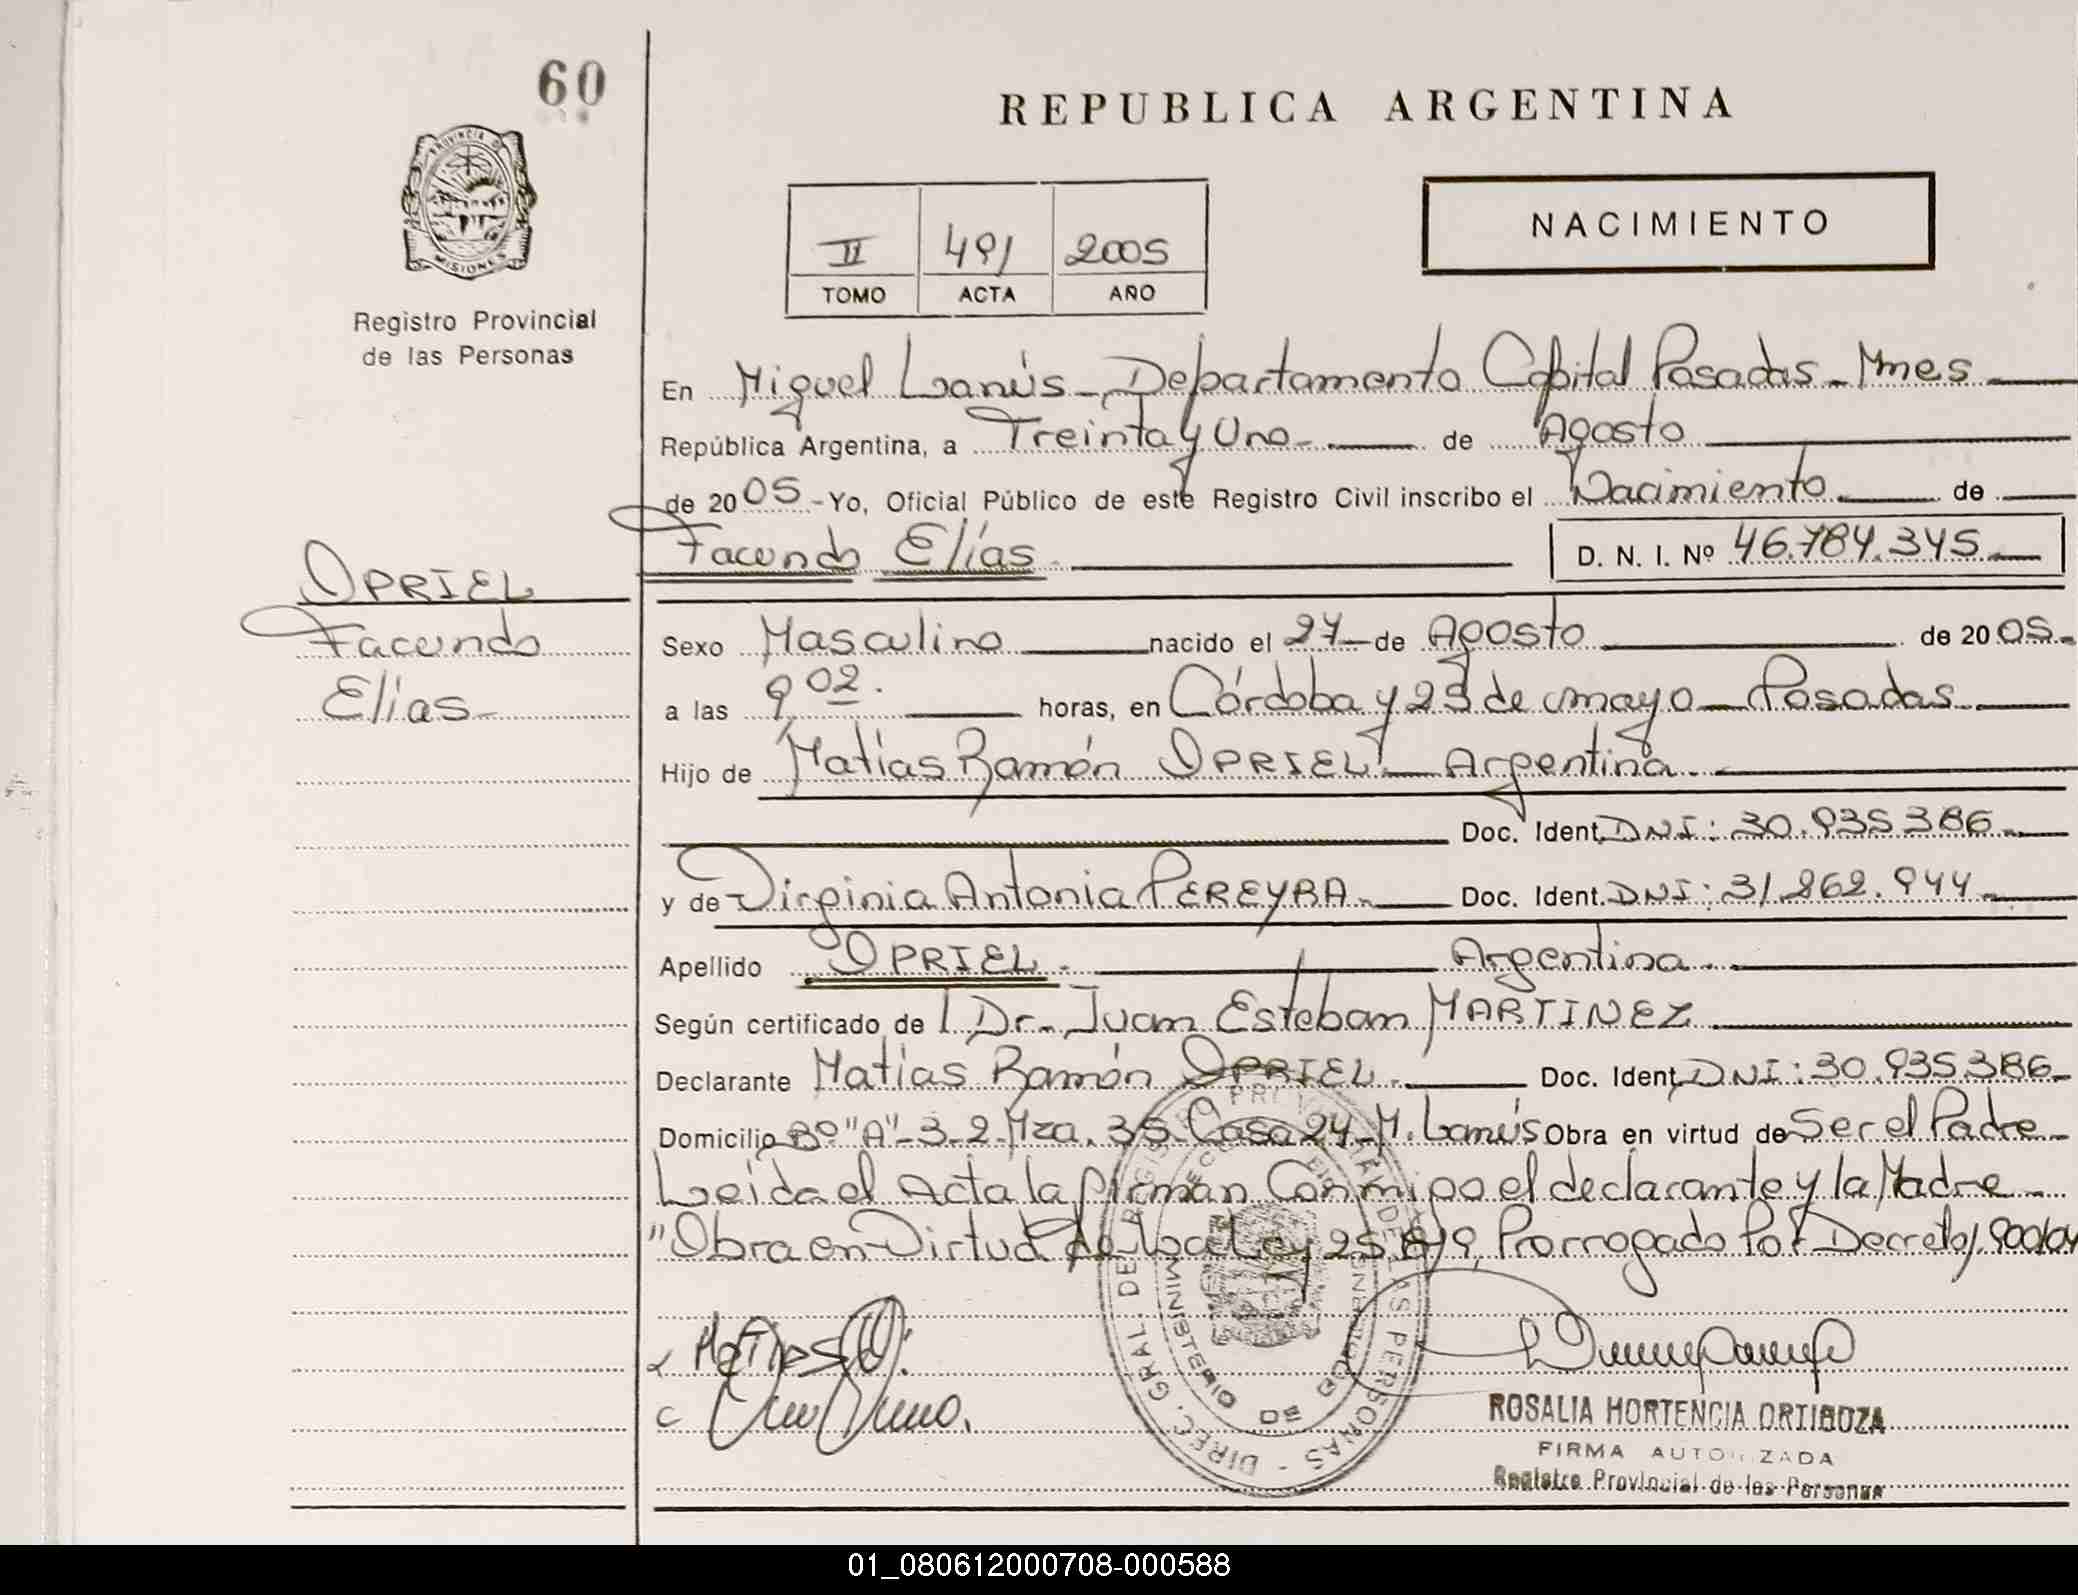 60
REPUBLICA ARGENTINA
PROVINCIA D
MISIONES
Registro Provincial
de las Personas
NACIMIENTO
II 491 2005
TOMO ACTA AÑO
En Miguel Lanús - Departamento Capital Posadas - Mnes
República Argentina, a Treinta y Uno de Agosto
de 2005 - Yo, Oficial Público de este Registro Civil inscribo el Nacimiento de
Facundo Elías D. N. I. Nº 46.784.345
OPRIEL
Facundo
Elías
Sexo Masculino nacido el 24 de Agosto de 2005
a las 9,02 horas, en Córdoba y 25 de mayo - Posadas
Hijo de Matías Ramón OPRIEL - Argentina
Doc. Ident. DNI: 30.935.386
y de Virginia Antonia PEREYRA Doc. Ident. DNI: 31.262.944
Apellido OPRIEL Argentina
Según certificado de l Dr. Juan Esteban MARTINEZ
Declarante Matías Ramón OPRIEL Doc. Ident. DNI: 30.935.386
Domicilio Bº "A" - 3-2 Mza. 35 Casa 24 - M. Lanús Obra en virtud de Ser el Padre
Leida el Acta la firman Conmigo el declarante y la Madre
"Obra en Virtud de la Ley 25.819, Prorrogado Por Decreto
DIREC. GRAL DE REGISTRO PROV. DE LAS PERSONAS
MINISTERIO DE
ROSALIA HORTENCIA ORTIGOZA
FIRMA AUTORIZADA
Registro Provincial de las Personas
01_080612000708-000588